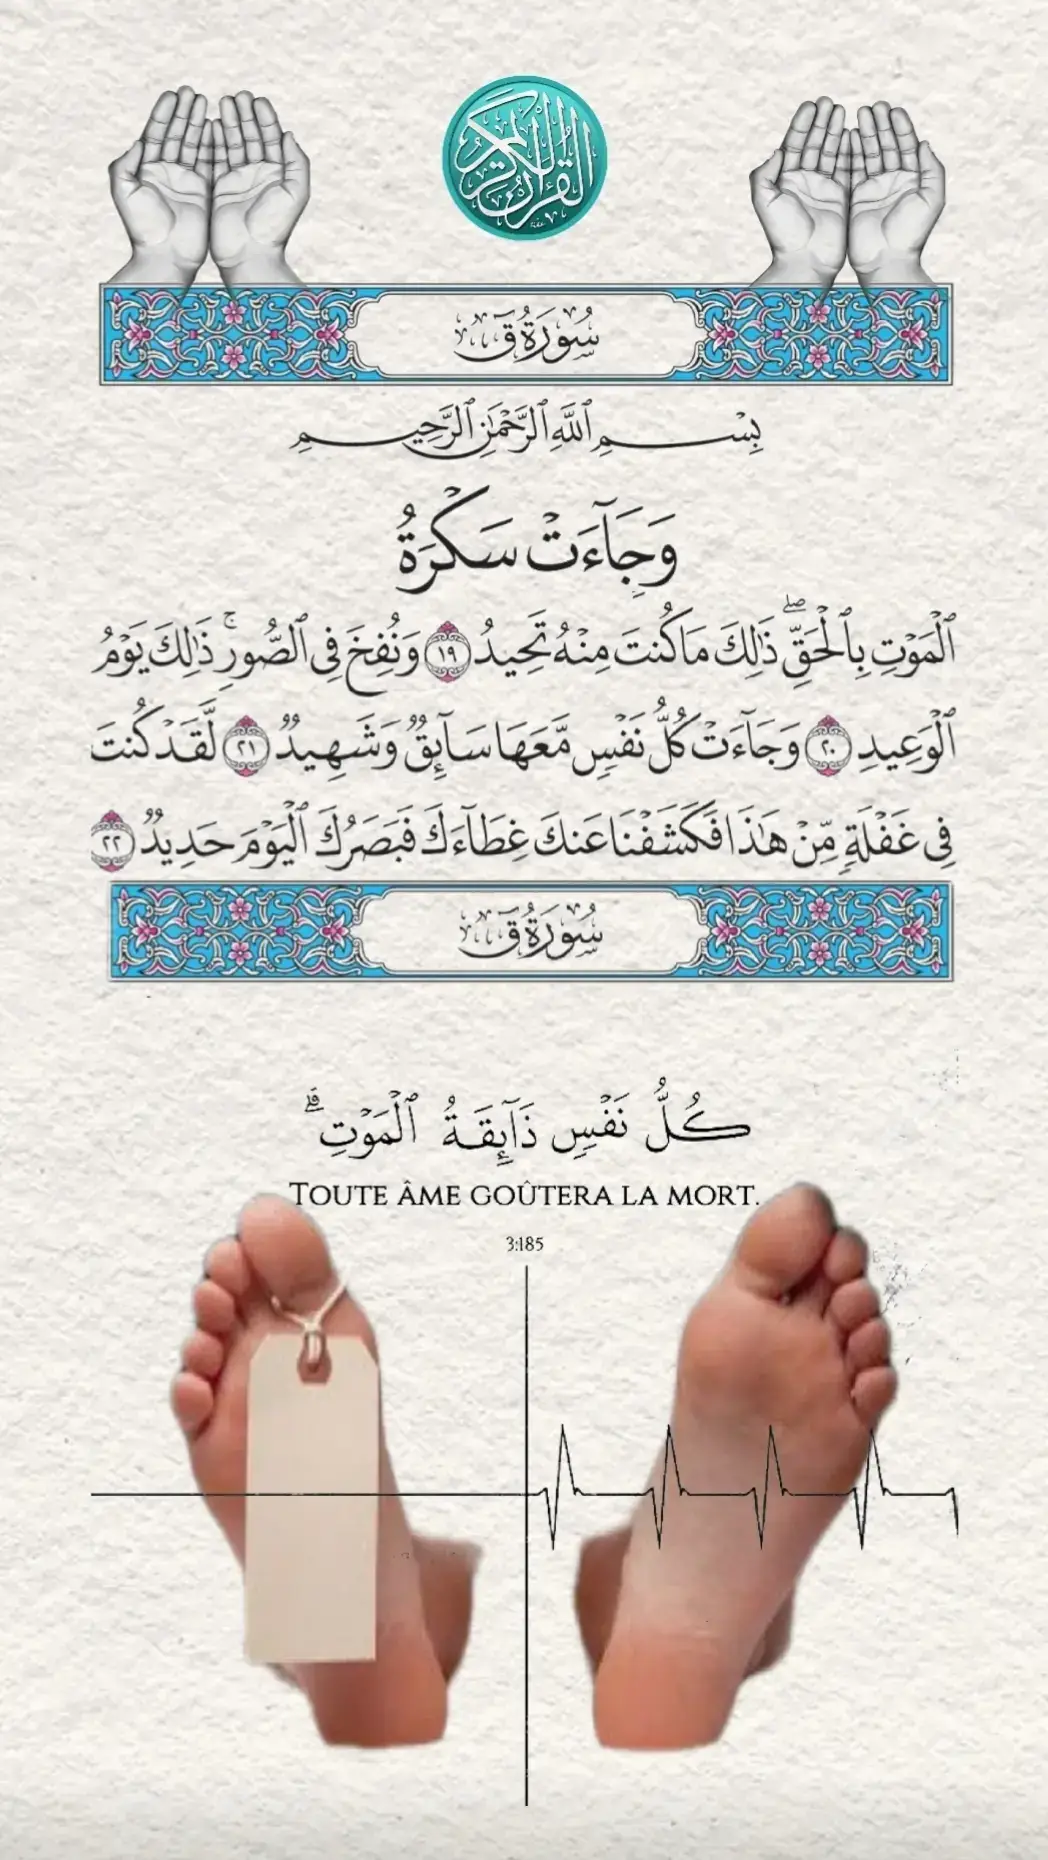 القرآن الكريم
سُورَةُ قٓ
بِسْمِ ٱللَّهِ ٱلرَّحْمَٰنِ ٱلرَّحِيمِ
وَجَآءَتْ سَكْرَةُ
ٱلْمَوْتِ بِٱلْحَقِّ ۖ ذَٰلِكَ مَا كُنتَ مِنْهُ تَحِيدُ ١٩ وَنُفِخَ فِى ٱلصُّورِ ۚ ذَٰلِكَ يَوْمُ
ٱلْوَعِيدِ ٢٠ وَجَآءَتْ كُلُّ نَفْسٍ مَّعَهَا سَآئِقٌ وَشَهِيدٌ ٢١ لَّقَدْ كُنتَ
فِى غَفْلَةٍ مِّنْ هَٰذَا فَكَشَفْنَا عَنكَ غِطَآءَكَ فَبَصَرُكَ ٱلْيَوْمَ حَدِيدٌ ٢٢
سُورَةُ قٓ
كُلُّ نَفْسٍ ذَآئِقَةُ ٱلْمَوْتِ ۗ
TOUTE ÂME GOÛTERA LA MORT.
3:185